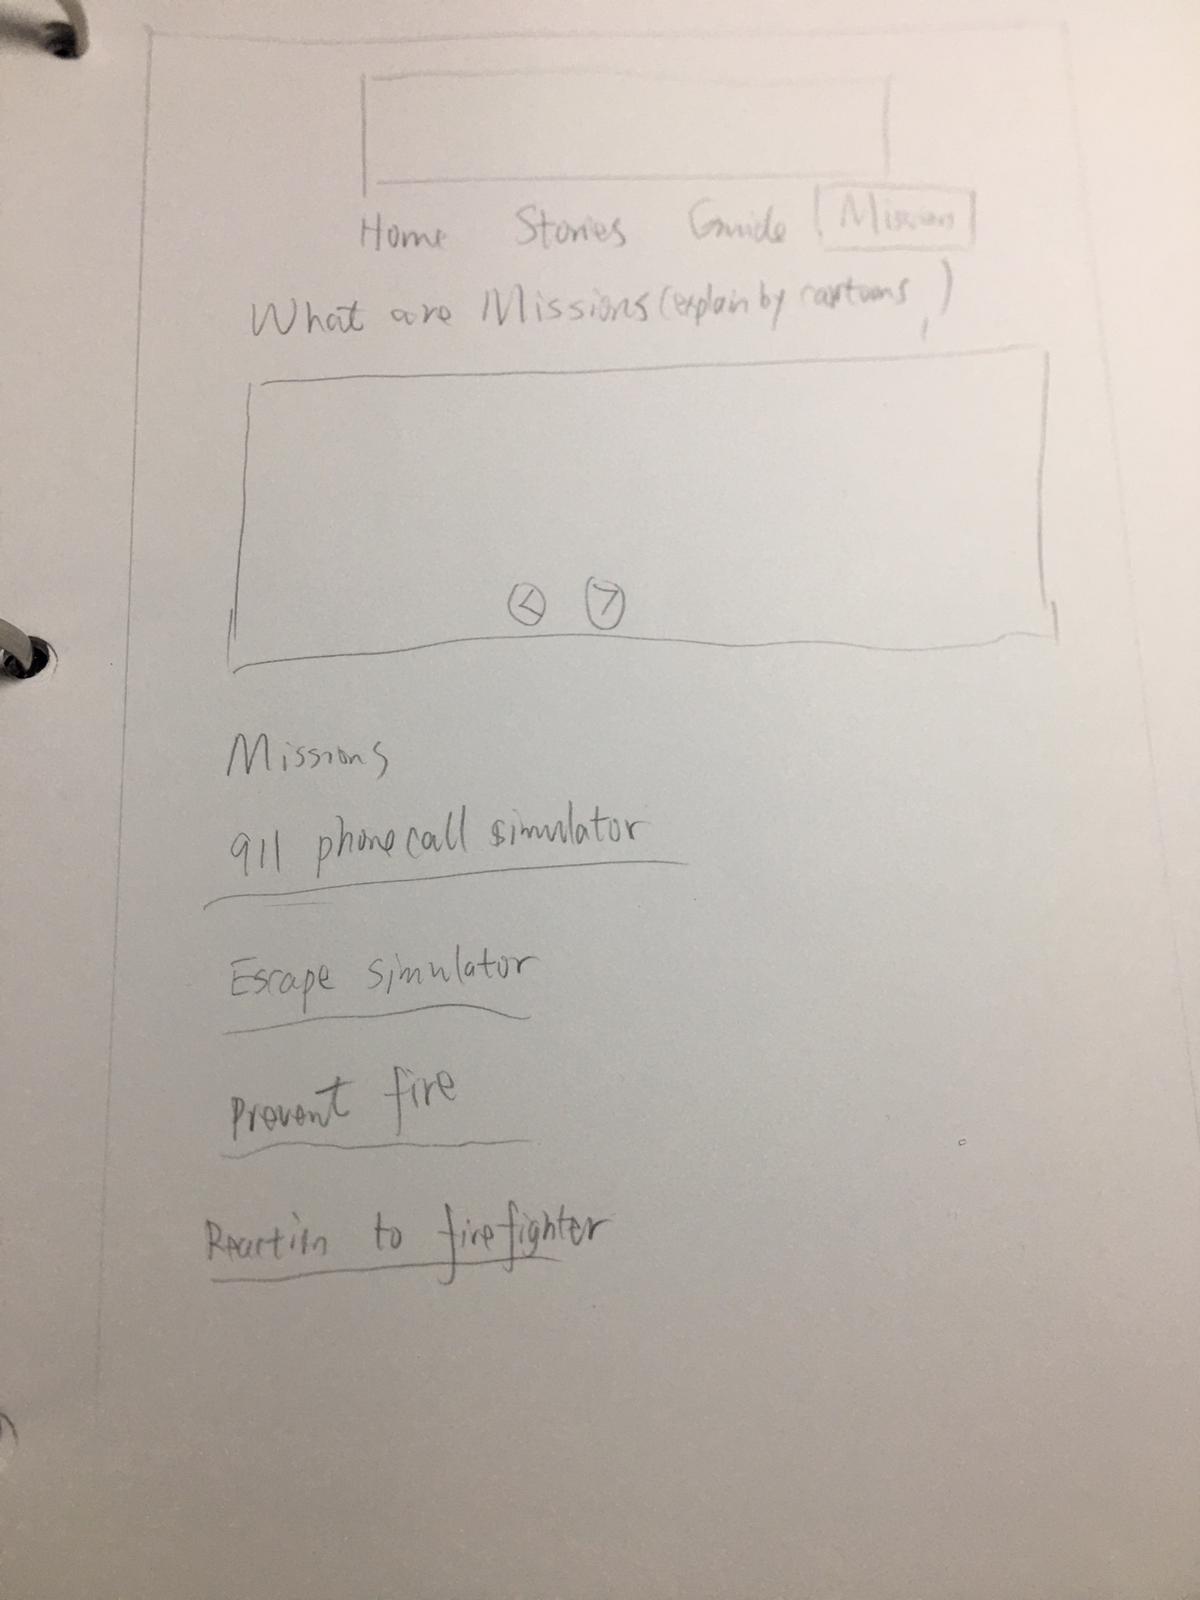 Home Stories Guide Mission
What are Missions (explain by cartoons, )
< >
Missions
911 phone call simulator
Escape simulator
Prevent fire
Reaction to firefighter